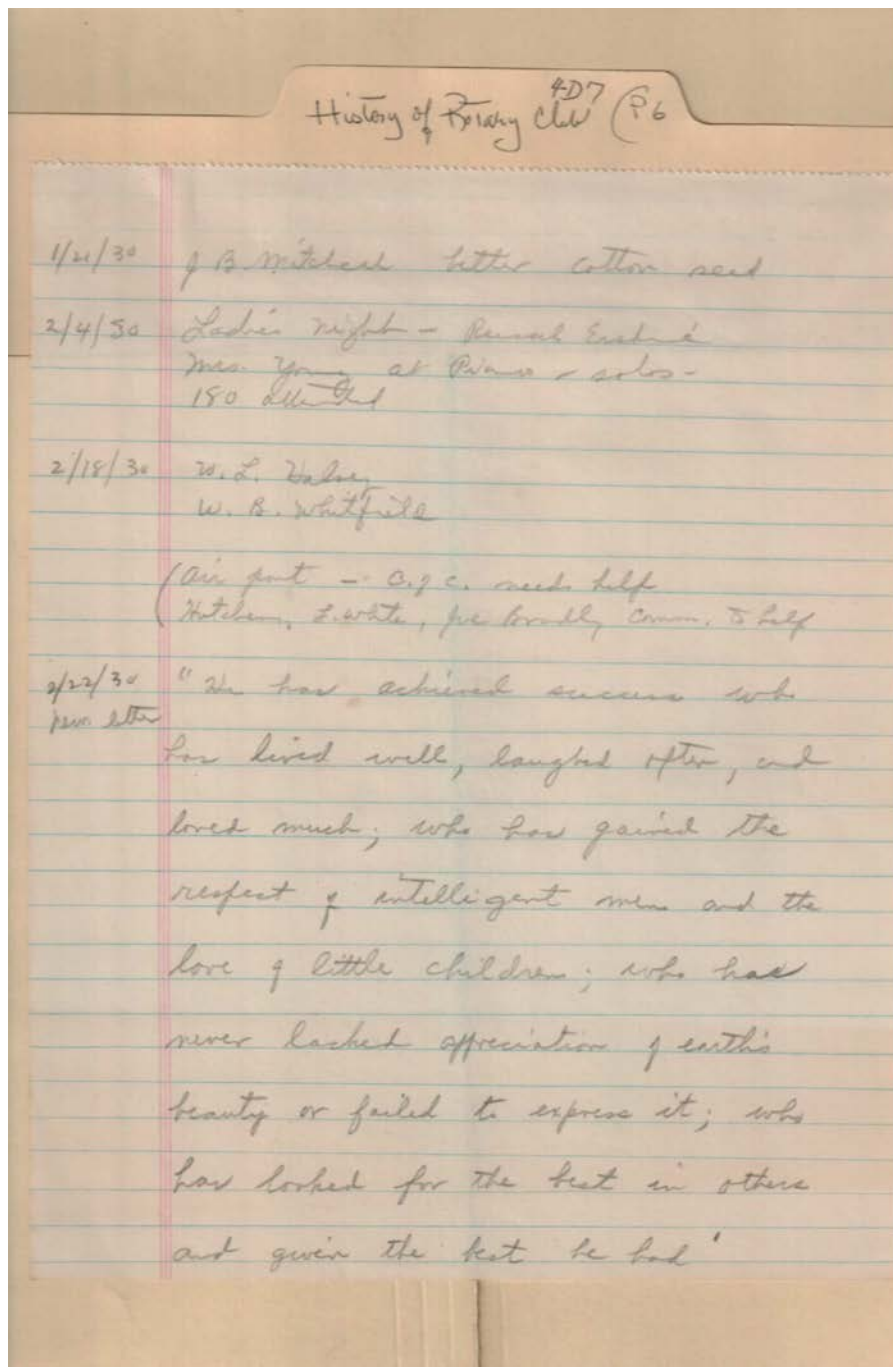 4-D7
History of Rotary Club (P6
1/21/30 J B Mitchell better cotton seed
2/4/30 Ladies night - Russel Erskine
Mrs. Young at Piano - solos -
180 attended
2/18/30 W. L. Halsey
W. B. Whitfield
(Air port - C. of C. needs help
Hutchens, L. White, Joe Bradly Comm. to help
2/22/30 "He has achieved success who
news letter
has lived well, laughed often, and
loved much; who has gained the
respect of intelligent men and the
love of little children; who has
never lacked appreciation of earth's
beauty or failed to express it; who
has looked for the best in others
and given the best he had"